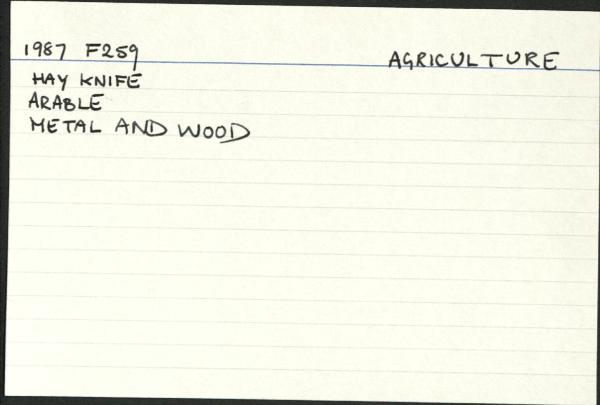 1987 F259 AGRICULTURE
HAY KNIFE
ARABLE
METAL AND WOOD